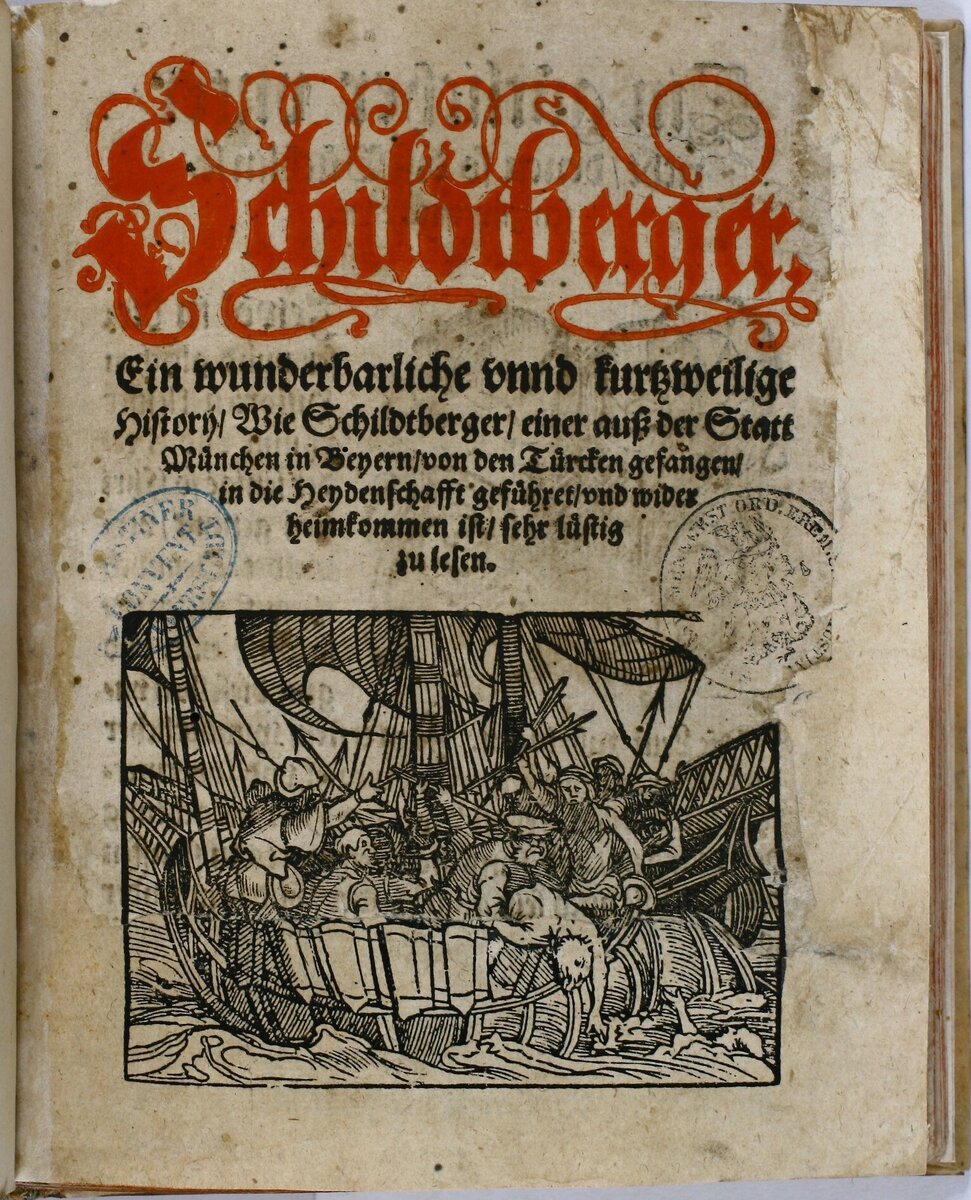 Schildtberger.
Ein wunderbarliche vnnd kurtzweilige
History/ Wie Schildtberger/ einer auß der Statt
München in Beyern/ von den Türcken gefangen/
in die Heydenschafft geführet/ vnd wider
heimkommen ist/ sehr lüstig
zu lesen.
CONVENT
ORD. EREMI